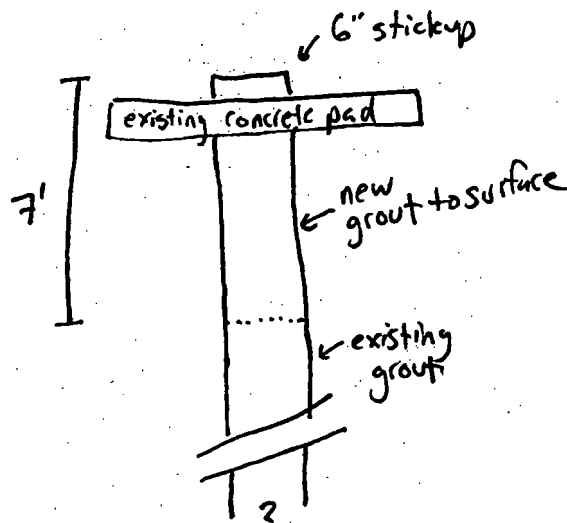 6" stickup
existing concrete pad
7'
new
grout to surface
existing
grout
?